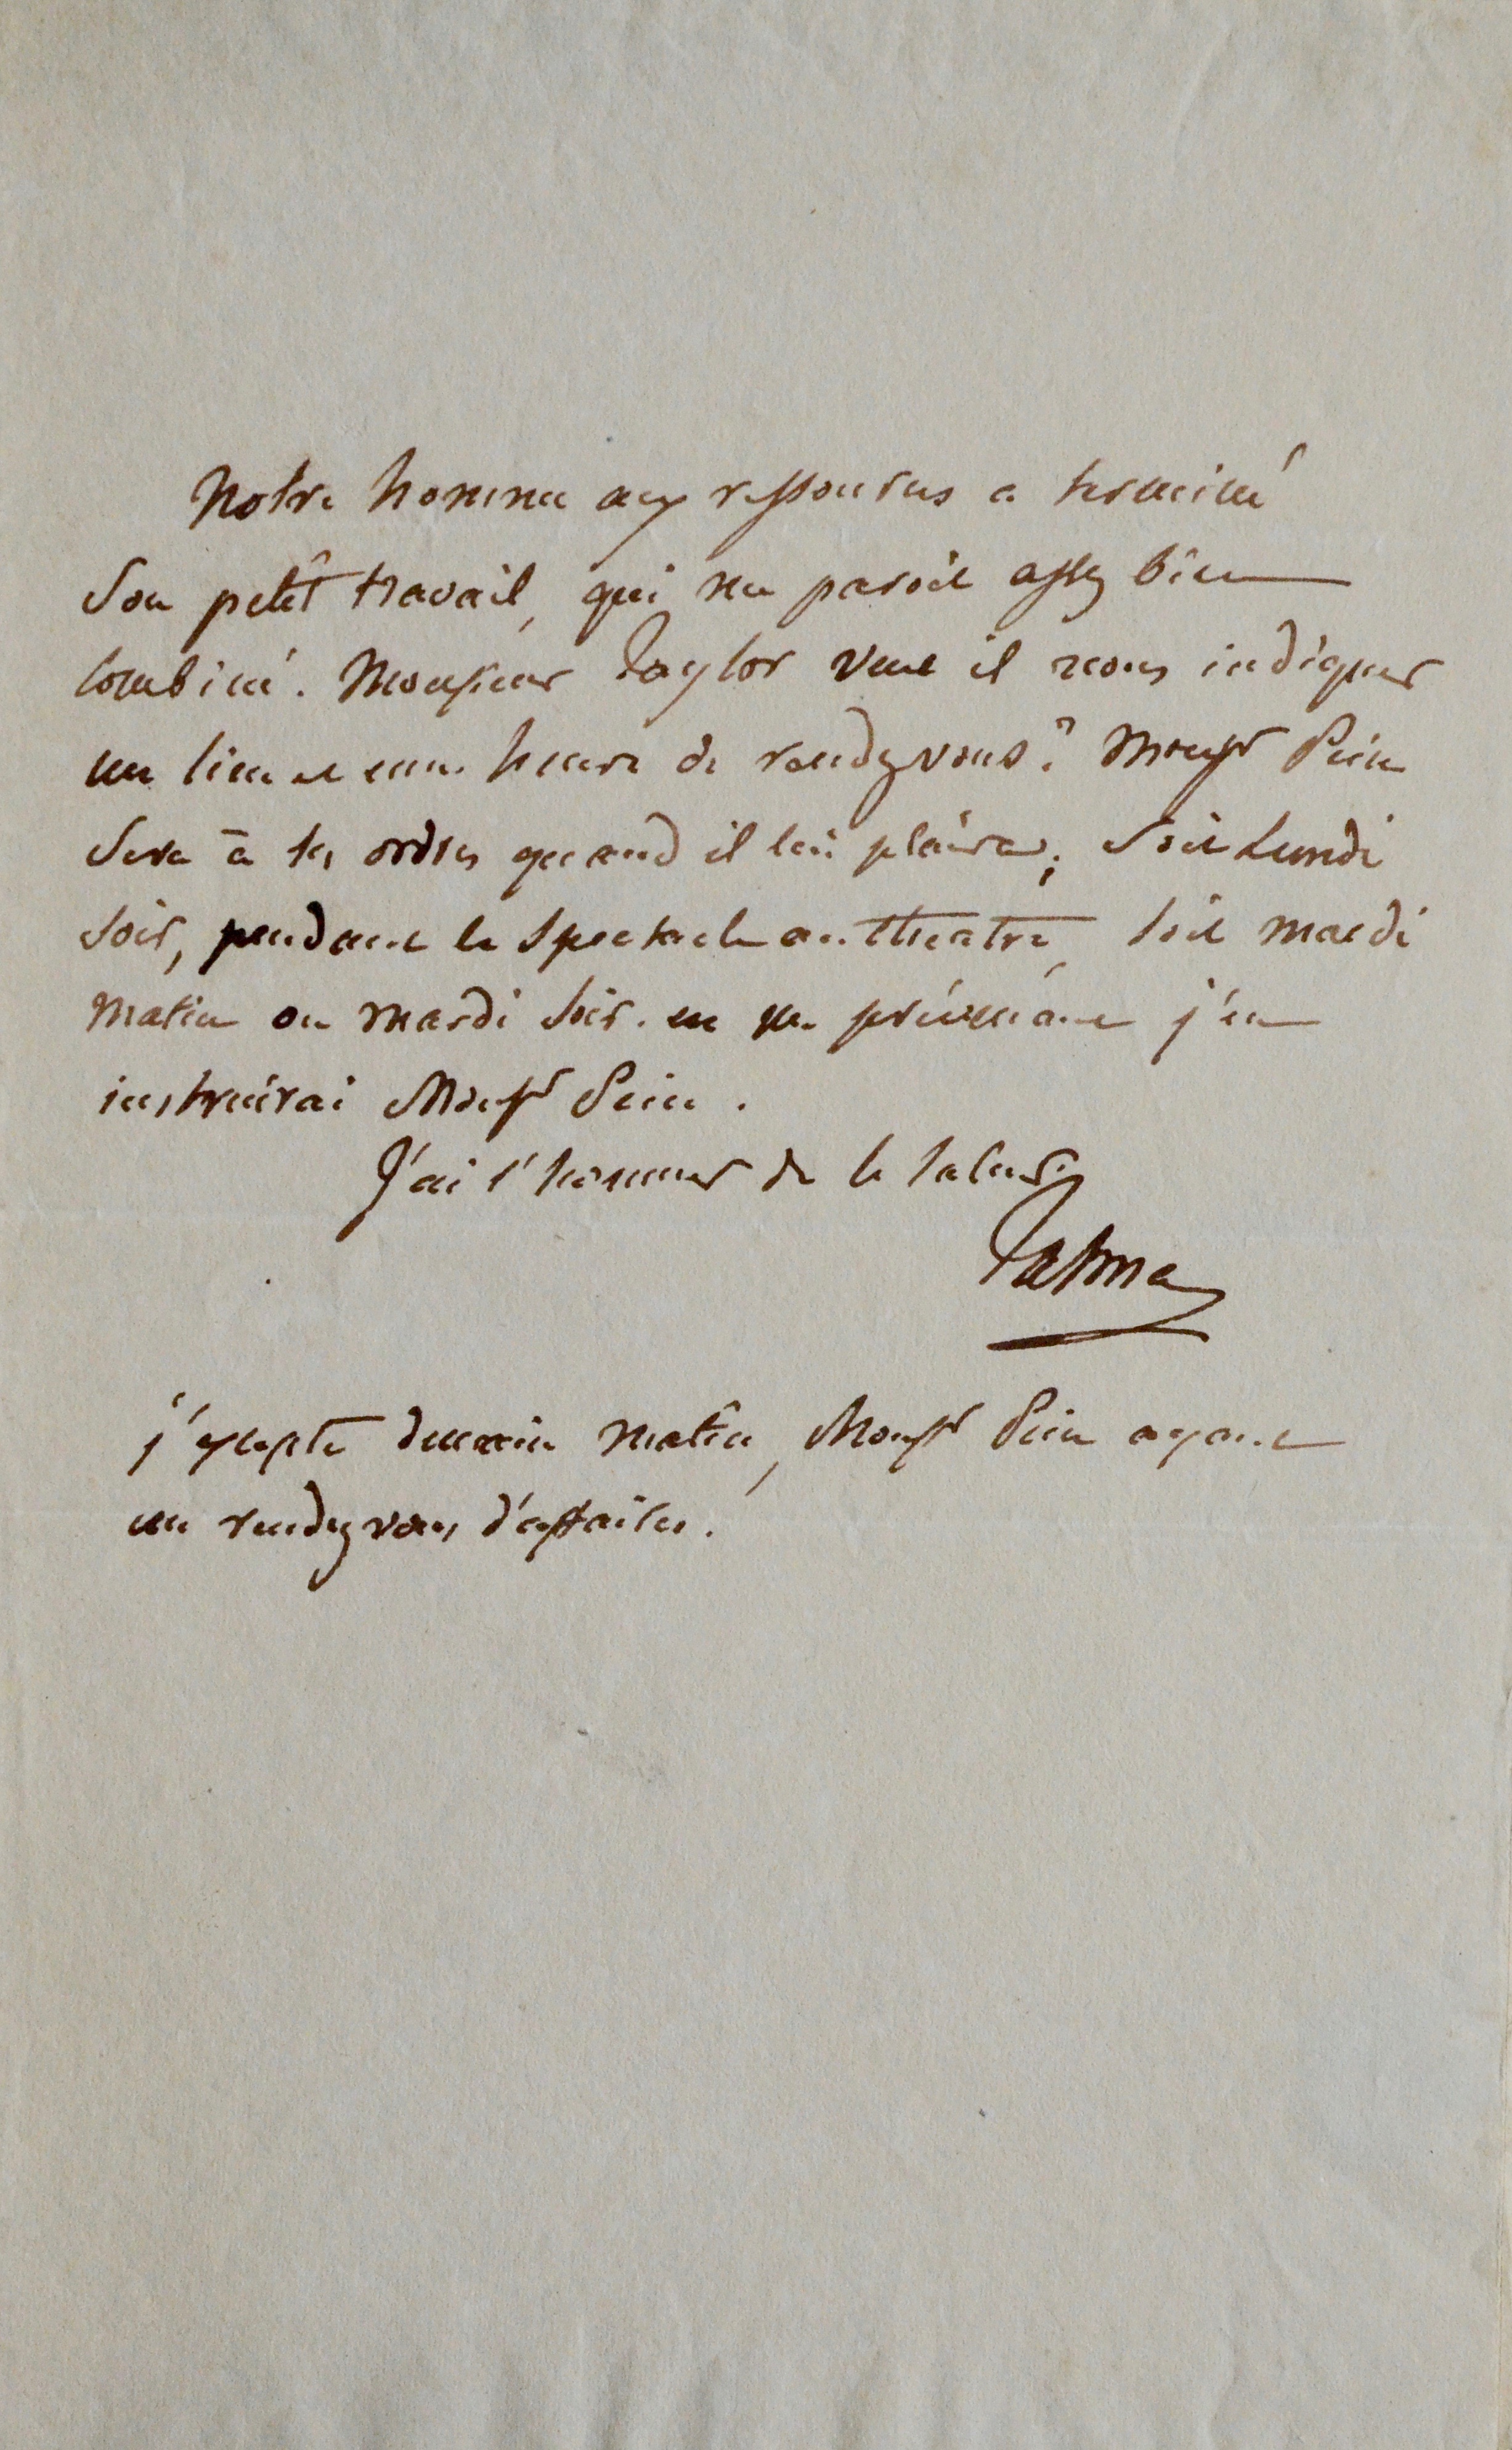 Notre homme aux ressources a terminé
Son petit travail, qui me paroit assez bien
combiné. Monsieur Taylor veut il nous indiquer
un lieu et une heure de rendezvous? Monsr Pein
sera à ses ordres quand il lui plaira; soit Lundi
soir, pendant le spectacle au theatre, soit mardi
matin ou mardi soir. en me prévenant j'en
instruirai Monsr Pein.
J'ai l'honneur de le saluer.
Talma
j'excepte demain matin, Monsr Pein ayant
un rendezvous d'affaires.